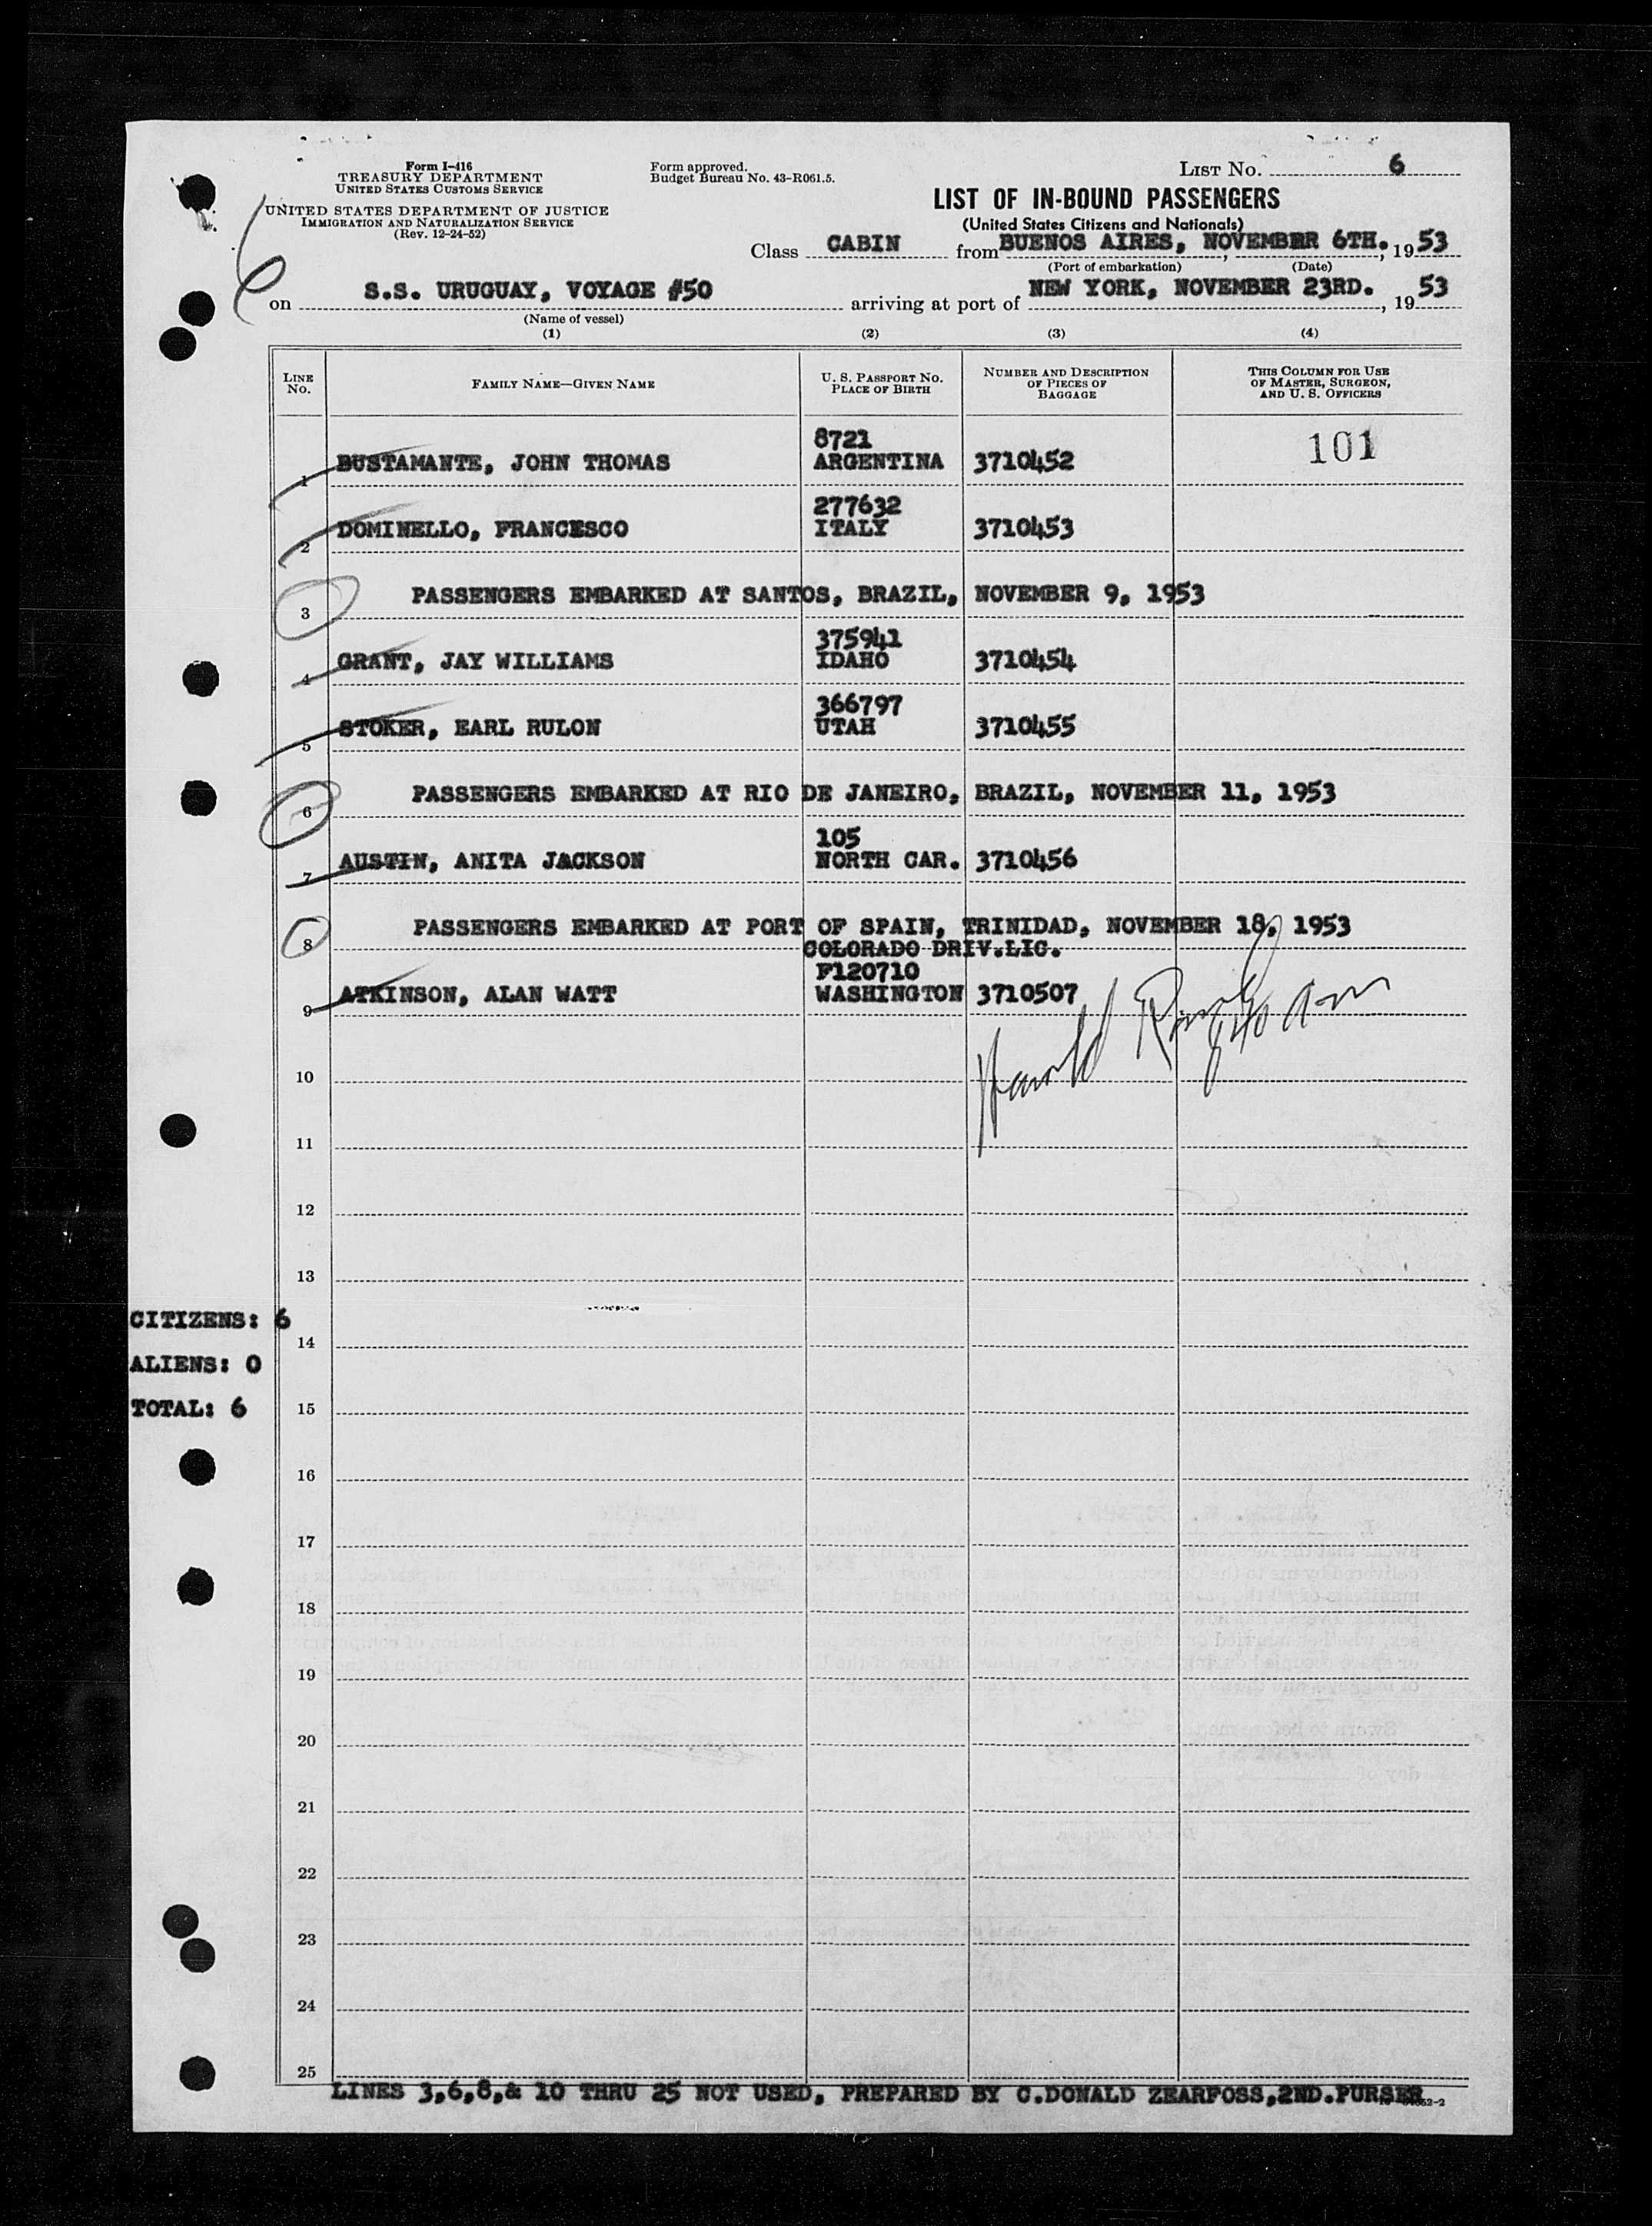 Form I-416
TREASURY DEPARTMENT
UNITED STATES CUSTOMS SERVICE
UNITED STATES DEPARTMENT OF JUSTICE
IMMIGRATION AND NATURALIZATION SERVICE
(Rev. 12-24-52)
Form approved.
Budget Bureau No. 43-R061.5.
LIST NO. 6
LIST OF IN-BOUND PASSENGERS
(United States Citizens and Nationals)
Class CABIN from BUENOS AIRES, NOVEMBER 6TH., 1953
(Port of embarkation) (Date)
on S.S. URUGUAY, VOYAGE #50 arriving at port of NEW YORK, NOVEMBER 23RD., 1953
(Name of vessel)
(1) (2) (3) (4)
LINE NO. FAMILY NAME—GIVEN NAME U. S. PASSPORT NO. PLACE OF BIRTH NUMBER AND DESCRIPTION OF PIECES OF BAGGAGE THIS COLUMN FOR USE OF MASTER, SURGEON, AND U. S. OFFICERS
8721 101
1 BUSTAMANTE, JOHN THOMAS ARGENTINA 3710452
277632
2 DOMINELLO, FRANCESCO ITALY 3710453
3 PASSENGERS EMBARKED AT SANTOS, BRAZIL, NOVEMBER 9, 1953
375941
4 GRANT, JAY WILLIAMS IDAHO 3710454
366797
5 STOKER, EARL RULON UTAH 3710455
6 PASSENGERS EMBARKED AT RIO DE JANEIRO, BRAZIL, NOVEMBER 11, 1953
105
7 AUSTIN, ANITA JACKSON NORTH CAR. 3710456
8 PASSENGERS EMBARKED AT PORT OF SPAIN, TRINIDAD, NOVEMBER 18, 1953
COLORADO DRIV.LIC.
F120710
9 ATKINSON, ALAN WATT WASHINGTON 3710507
Harold
840 am
10
11
12
13
CITIZENS: 6
14
ALIENS: 0
TOTAL: 6
15
16
17
18
19
20
21
22
23
24
25
LINES 3,6,8,& 10 THRU 25 NOT USED, PREPARED BY C.DONALD ZEARFOSS,2ND.PURSER